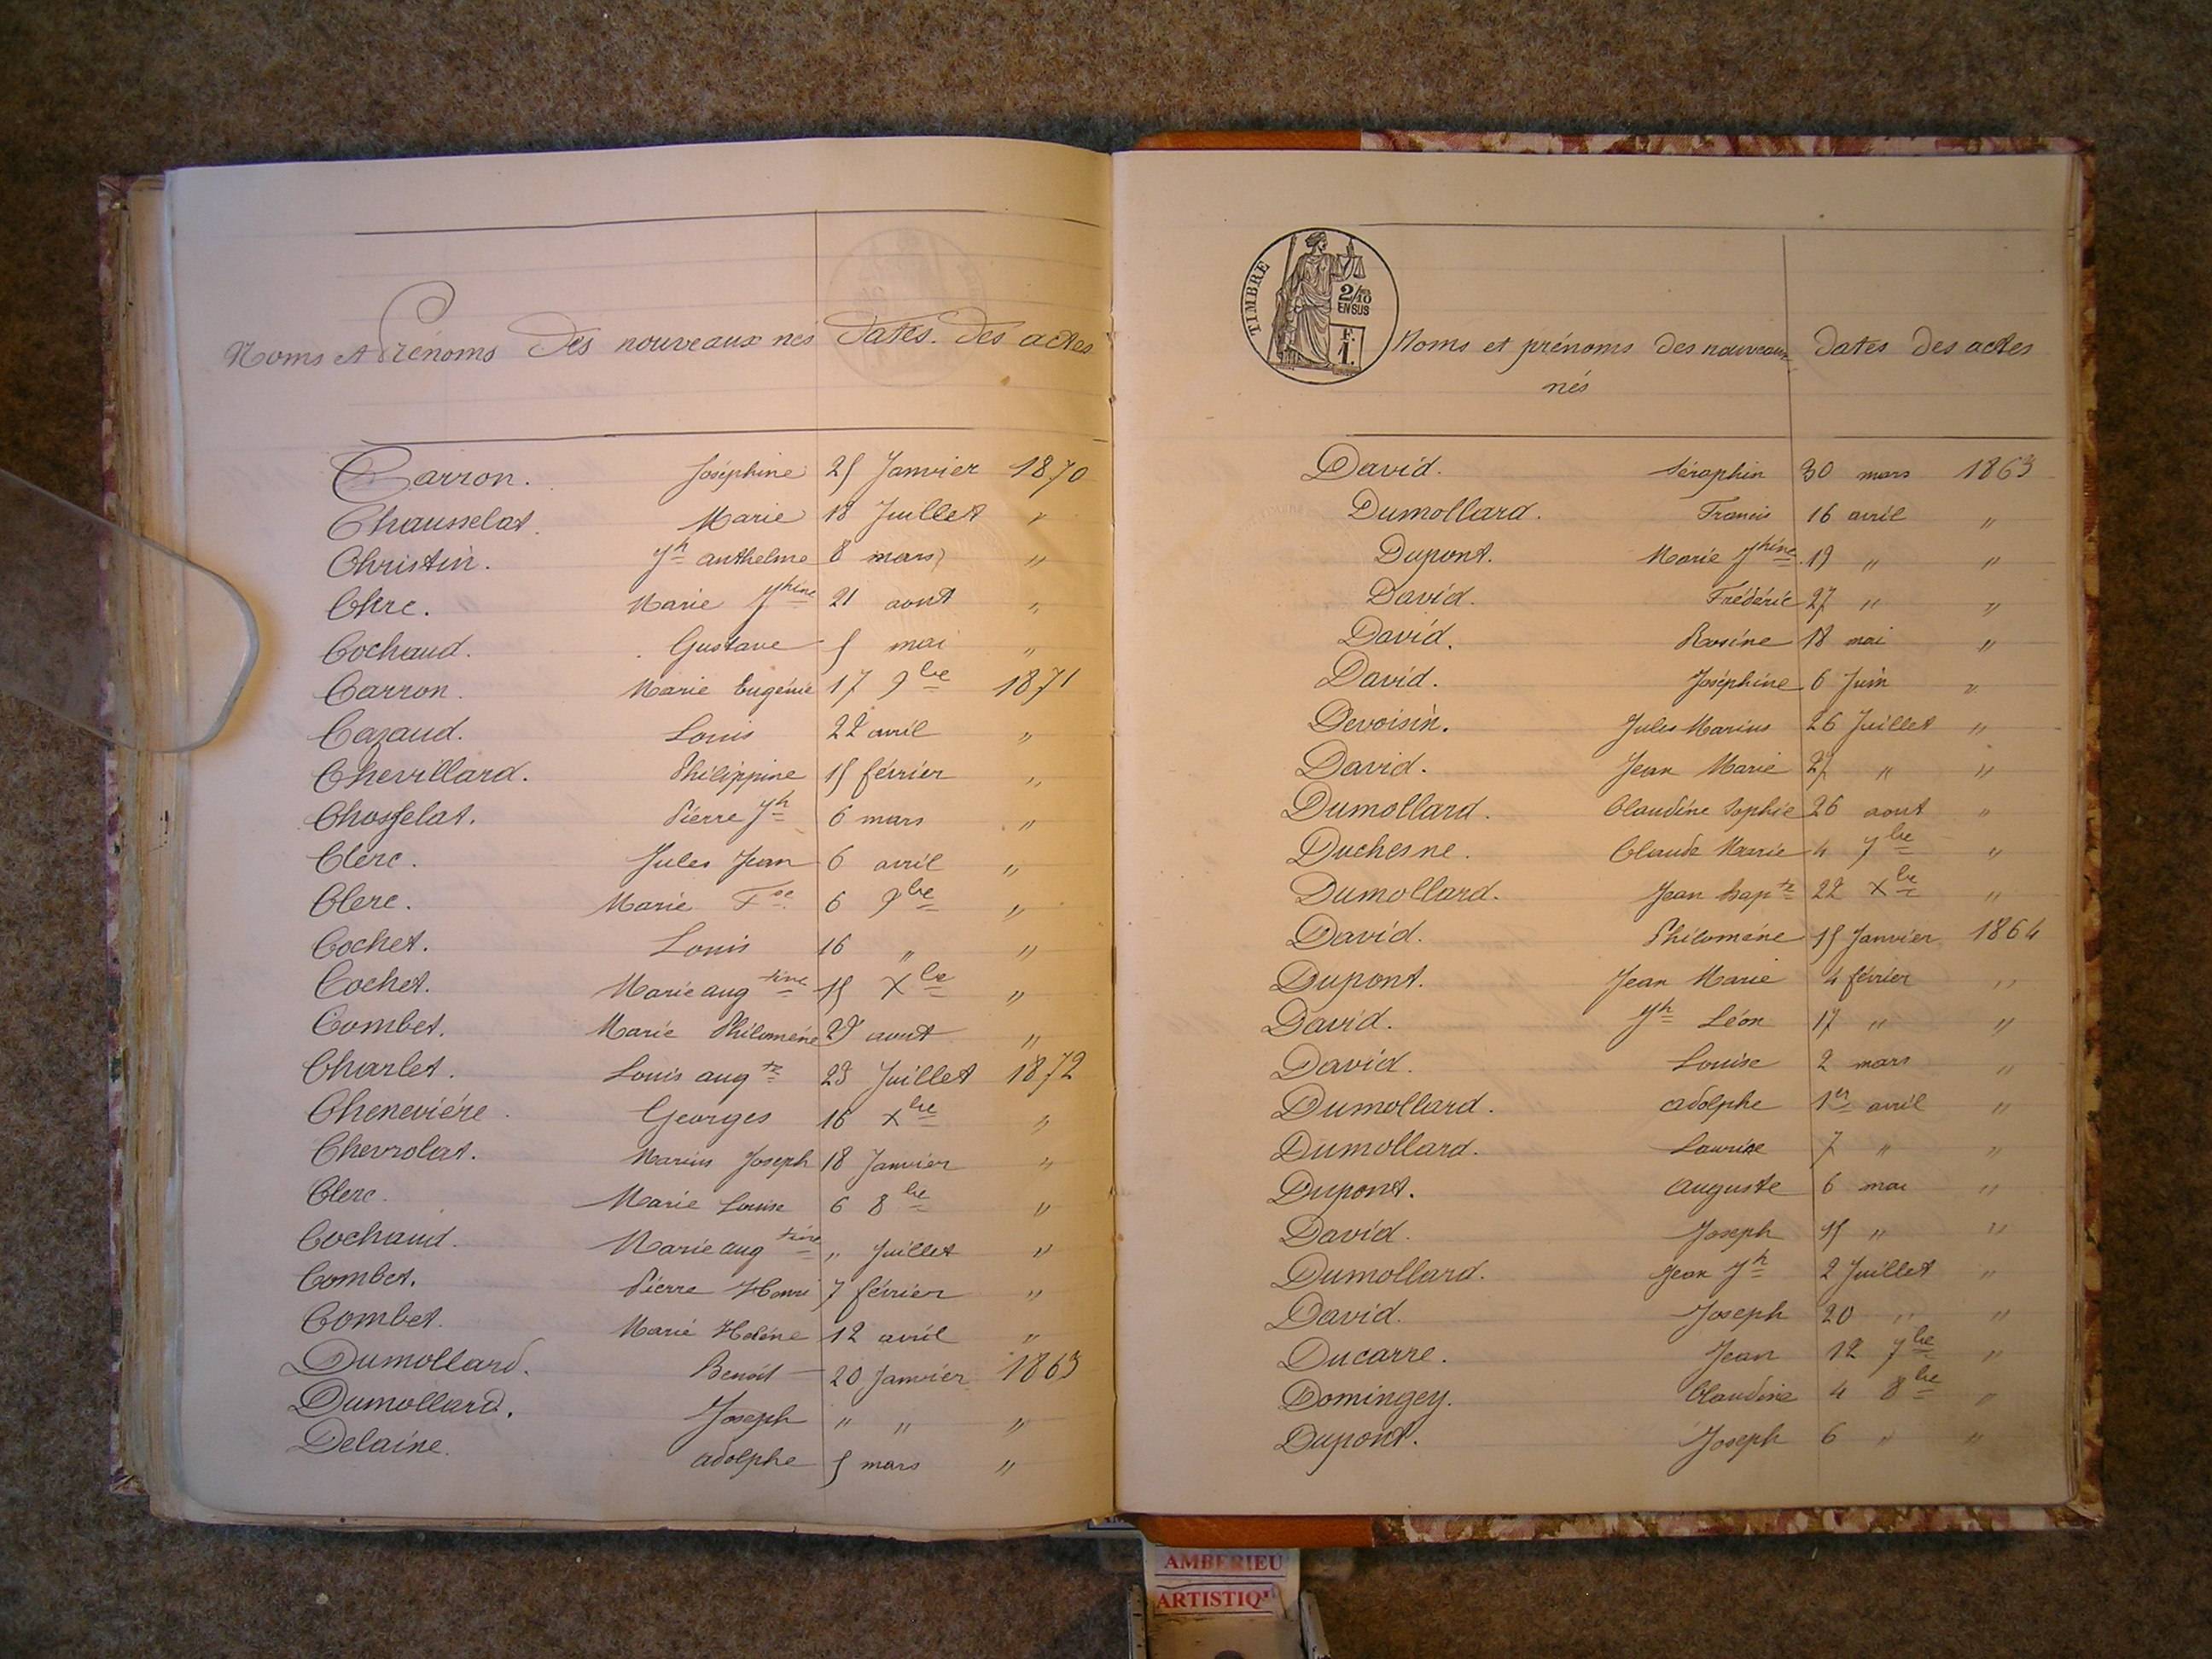 Noms et Prénoms des nouveaux nés dates des actes
Carron. Joséphine 25 Janvier 1870
Chausselat. Marie 18 Juillet "
Christin. Jh anthelme 8 mars "
Clerc. Marie Jhine 21 aout "
Cochaud. Gustave 5 mai "
Carron. Marie Eugénie 17 9bre 1871
Cazaud. Louis 22 avril "
Chevillard. Philippine 15 février "
Chosselat. Pierre Jh 6 mars "
Clerc. Jules Jean 6 avril "
Clerc. Marie Fse 6 9bre "
Cochet. Louis 16 " "
Cochet. Marie augtine 15 Xbre "
Combet. Marie Philomène aout "
Charlet. Louis augte 23 Juillet 1872
Chenevière. Georges 16 Xbre "
Chevrolat. Marius Joseph 18 Janvier "
Clerc. Marie Louise 6 8bre "
Cochaud. Marie augtine " Juillet "
Combet. Pierre Henri 7 février "
Combet. Marie Helène 12 avril "
Dumollard. Benoit 20 Janvier 1863
Dumollard. Joseph " " "
Delaine. adolphe 5 mars "
TIMBRE
2/10
EN SUS
F.
1.
Noms et prénoms des nouveaux dates des actes
nés
David. Séraphin 30 mars 1863
Dumollard. Francis 16 avril "
Dupont. Marie Jhine 19 " "
David. Frédéric 27 " "
David. Rosine 18 mai "
David. Joséphine 6 Juin "
Devoisin. Jules Marius 26 Juillet "
David. Jean Marie 27 " "
Dumollard. Claudine Sophie 26 aout "
Duchesne. Claude Marie 4 7bre "
Dumollard. Jean bapte 22 Xbre "
David. Philomène 15 Janvier 1864
Dupont. Jean Marie 4 février "
David. Jh Léon 17 " "
David. Louise 2 mars "
Dumollard. adolphe 1er avril "
Dumollard. Laurine 7 " "
Dupont. auguste 6 mai "
David. Joseph 15 " "
Dumollard. Jean Jh 2 Juillet "
David. Joseph 20 " "
Ducarre. Jean 12 7bre "
Domingey. Claudine 4 8bre "
Dupont. Joseph 6 " "
AMBERIEU
ARTISTIQ